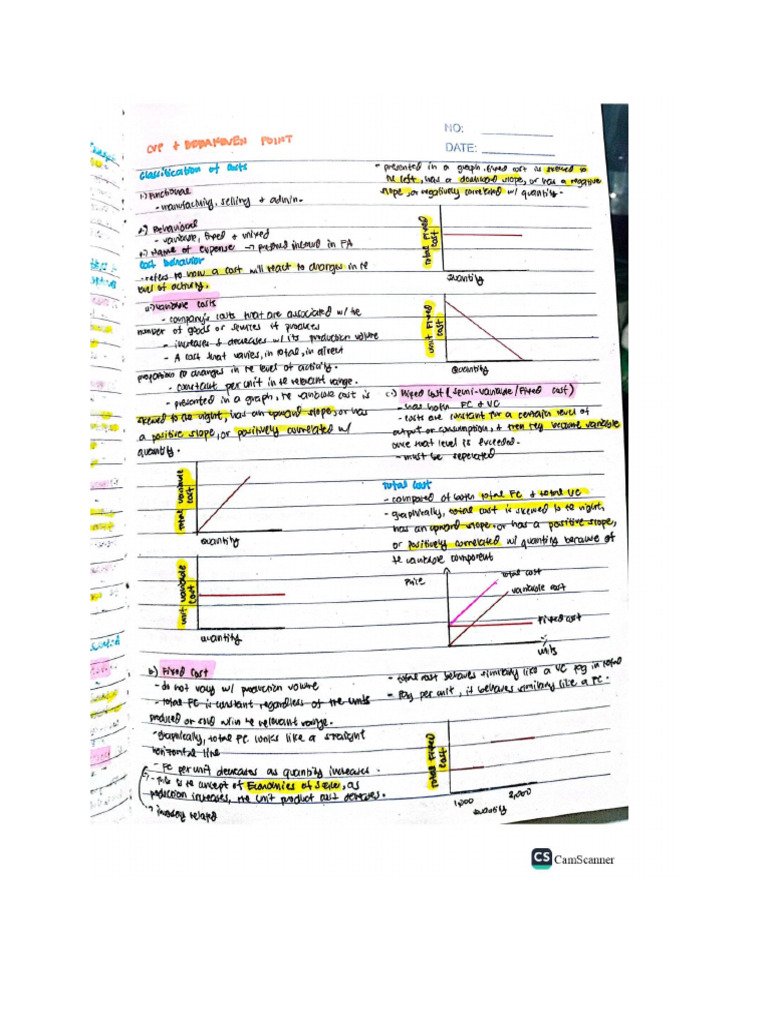 CVP + BREAKEVEN POINT
NO:
DATE:
Classification of Costs
1) Functional
- manufacturing, selling + admin.
2) Behavioral
- variable, fixed + mixed
Name of expense → preferred in FA
Cost behavior
- refers to how a cost will react to changes in the
level of activity.
a) Variable costs
- company's costs that are associated w/ the
number of goods or services it produces
- increases & decreases w/ its production volume
- A cost that varies, in total, in direct
proportion to changes in the level of activity.
- constant per unit in the relevant range.
- presented in a graph, the variable cost is
skewed to the right, has an upward slope, or has
a positive slope, or positively correlated w/
quantity.
Total Variable Cost
Quantity
Unit Variable Cost
Quantity
b) Fixed Cost
- do not vary w/ production volume
- total FC is constant regardless of the units
produced or sold w/in the relevant range.
- graphically, total FC looks like a straight
horizontal line
- FC per unit decreases as quantity increases.
- this is the concept of Economies of Scale, as
production increases, the unit product cost decreases.
inversely related
- presented in a graph, fixed cost is skewed to
the left, has a downward slope, or has a negative
slope, or negatively correlated w/ quantity.
Total Fixed Cost
Quantity
Unit Fixed Cost
Quantity
c) Mixed Cost (Semi-variable/Fixed cost)
- has both FC & VC
- costs are constant for a certain level of
output or consumption, & then they become variable
once that level is exceeded.
- must be seperated
Total Cost
- composed of both total FC & total VC
- graphically, total cost is skewed to the right,
has an upward slope or has a positive slope,
or positively correlated w/ quantity because of
the variable component
Price
total cost
variable cost
Fixed cost
units
- total cost behaves similarly like a VC in total
- per unit, it behaves similarly like a FC.
Total Fixed Cost
1,000
2,000
Quantity
CS CamScanner